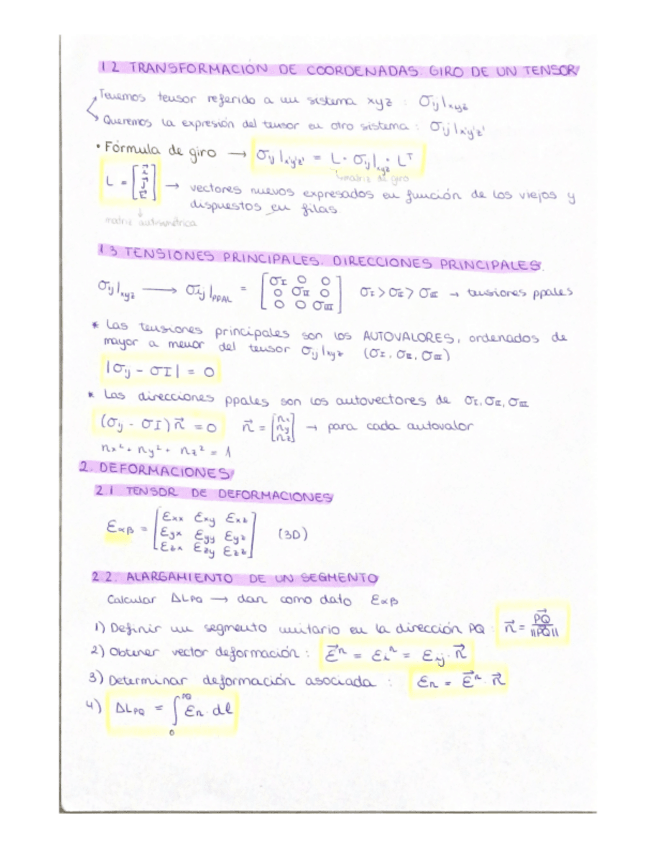 1.2 TRANSFORMACIÓN DE COORDENADAS. GIRO DE UN TENSOR
Tenemos tensor referido a un sistema xyz : σij|xyz
Queremos la expresión del tensor en otro sistema : σij|x'y'z'
• Fórmula de giro → σij|x'y'z' = L · σij|xyz · L^T
matriz de giro
L = [i⃗ j⃗ k⃗] → vectores nuevos expresados en función de los viejos y
dispuestos en filas
matriz antisimétrica
1.3 TENSIONES PRINCIPALES. DIRECCIONES PRINCIPALES.
σij|xyz → σij|PPAL = [σI 0 0; 0 σII 0; 0 0 σIII] σI > σII > σIII → tensiones ppales
* Las tensiones principales son los AUTOVALORES, ordenados de
mayor a menor del tensor σij|xyz (σI, σII, σIII)
|σij - σI| = 0
* Las direcciones ppales son los autovectores de σI, σII, σIII
(σij - σI) n⃗ = 0 n⃗ = [nx ny nz] → para cada autovalor
nx² + ny² + nz² = 1
2. DEFORMACIONES
2.1 TENSOR DE DEFORMACIONES
εαβ = [εxx εxy εxz; εyx εyy εyz; εzx εzy εzz] (3D)
2.2. ALARGAMIENTO DE UN SEGMENTO
Calcular ΔLPQ → dan como dato εαβ
1) Definir un segmento unitario en la dirección PQ : n⃗ = PQ⃗ / ||PQ⃗||
2) Obtener vector deformación : ε⃗ⁿ = εiⁿ = εij · n⃗
3) Determinar deformación asociada : εn = ε⃗ⁿ · n⃗
4) ΔLPQ = ∫₀^PQ εn · dl